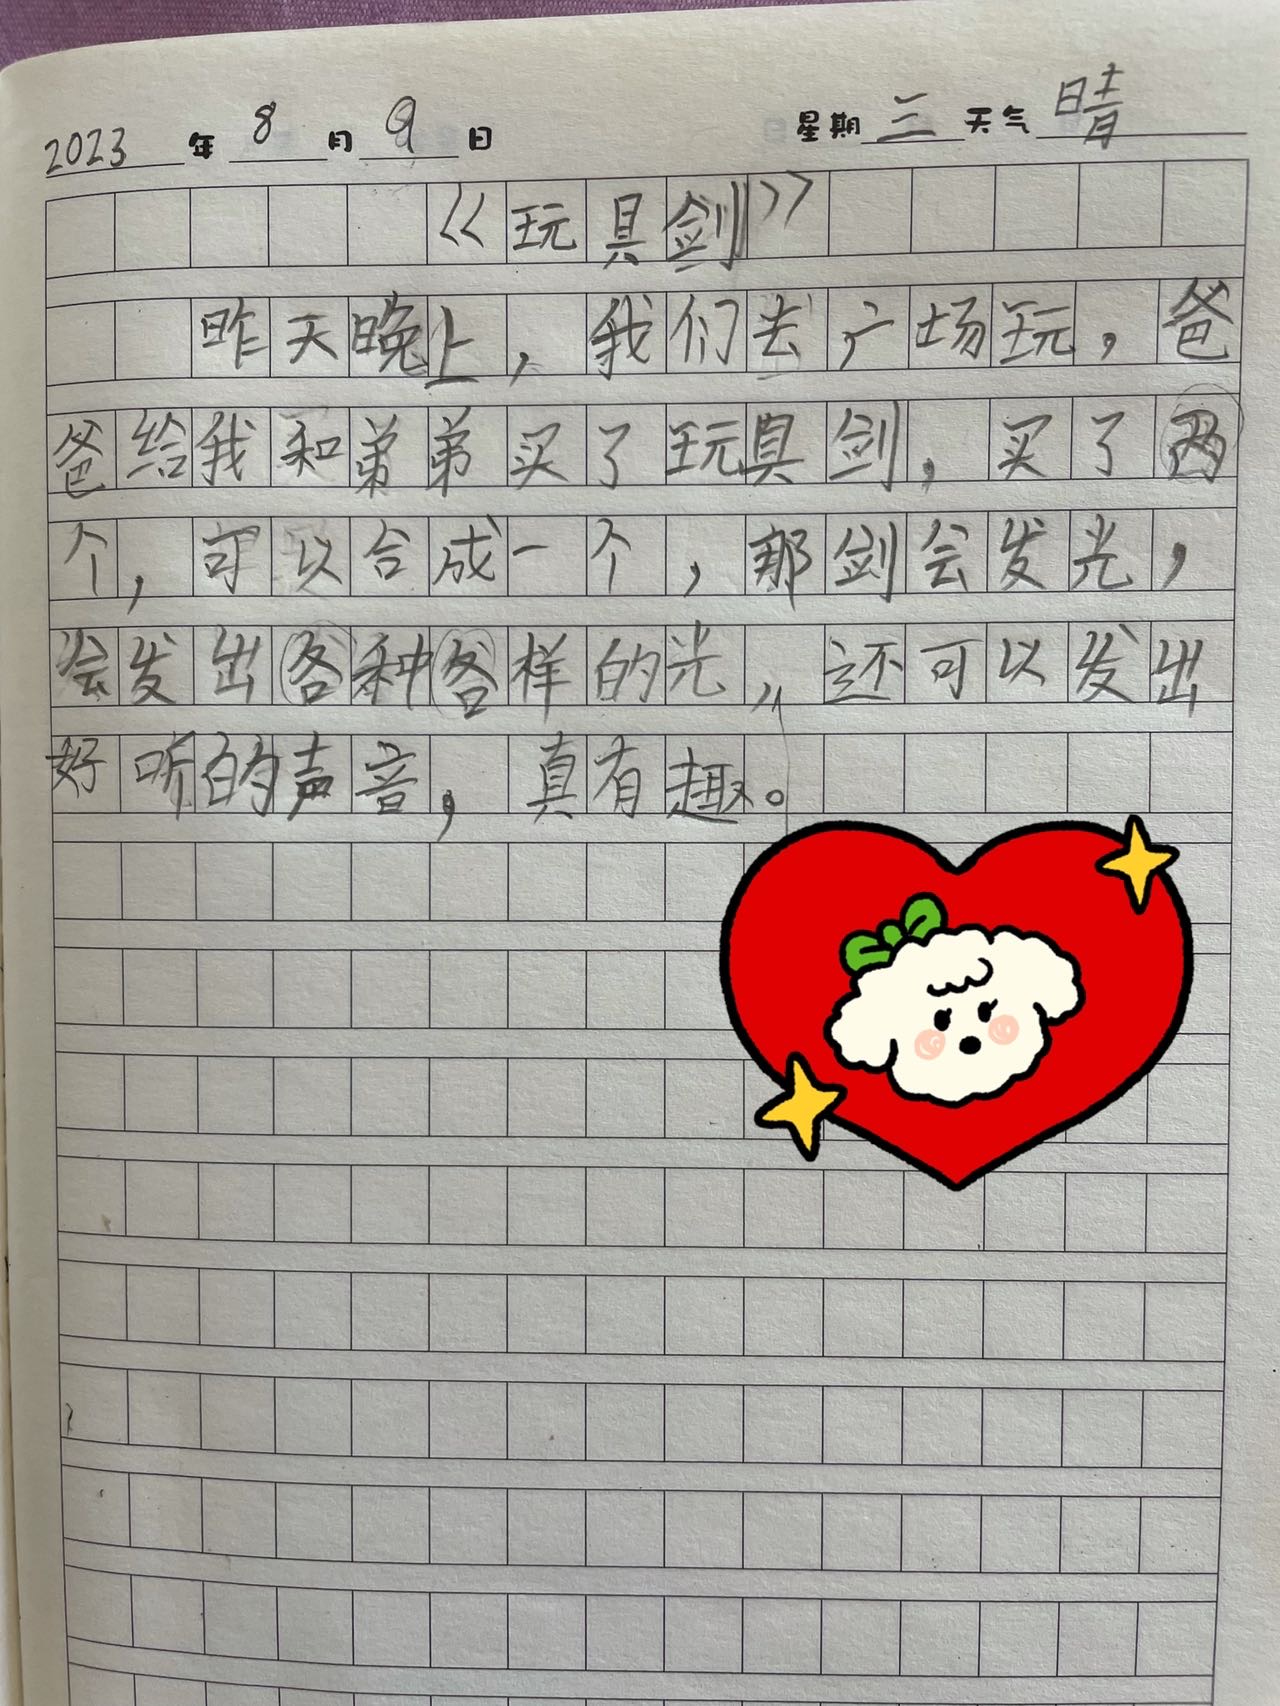 2023年8月9日 星期三 天气晴
《玩具剑》
昨天晚上，我们去广场玩，爸
爸给我和弟弟买了玩具剑，买了两
个，可以合成一个，那剑会发光，
会发出各种各样的光，还可以发出
好听的声音，真有趣。